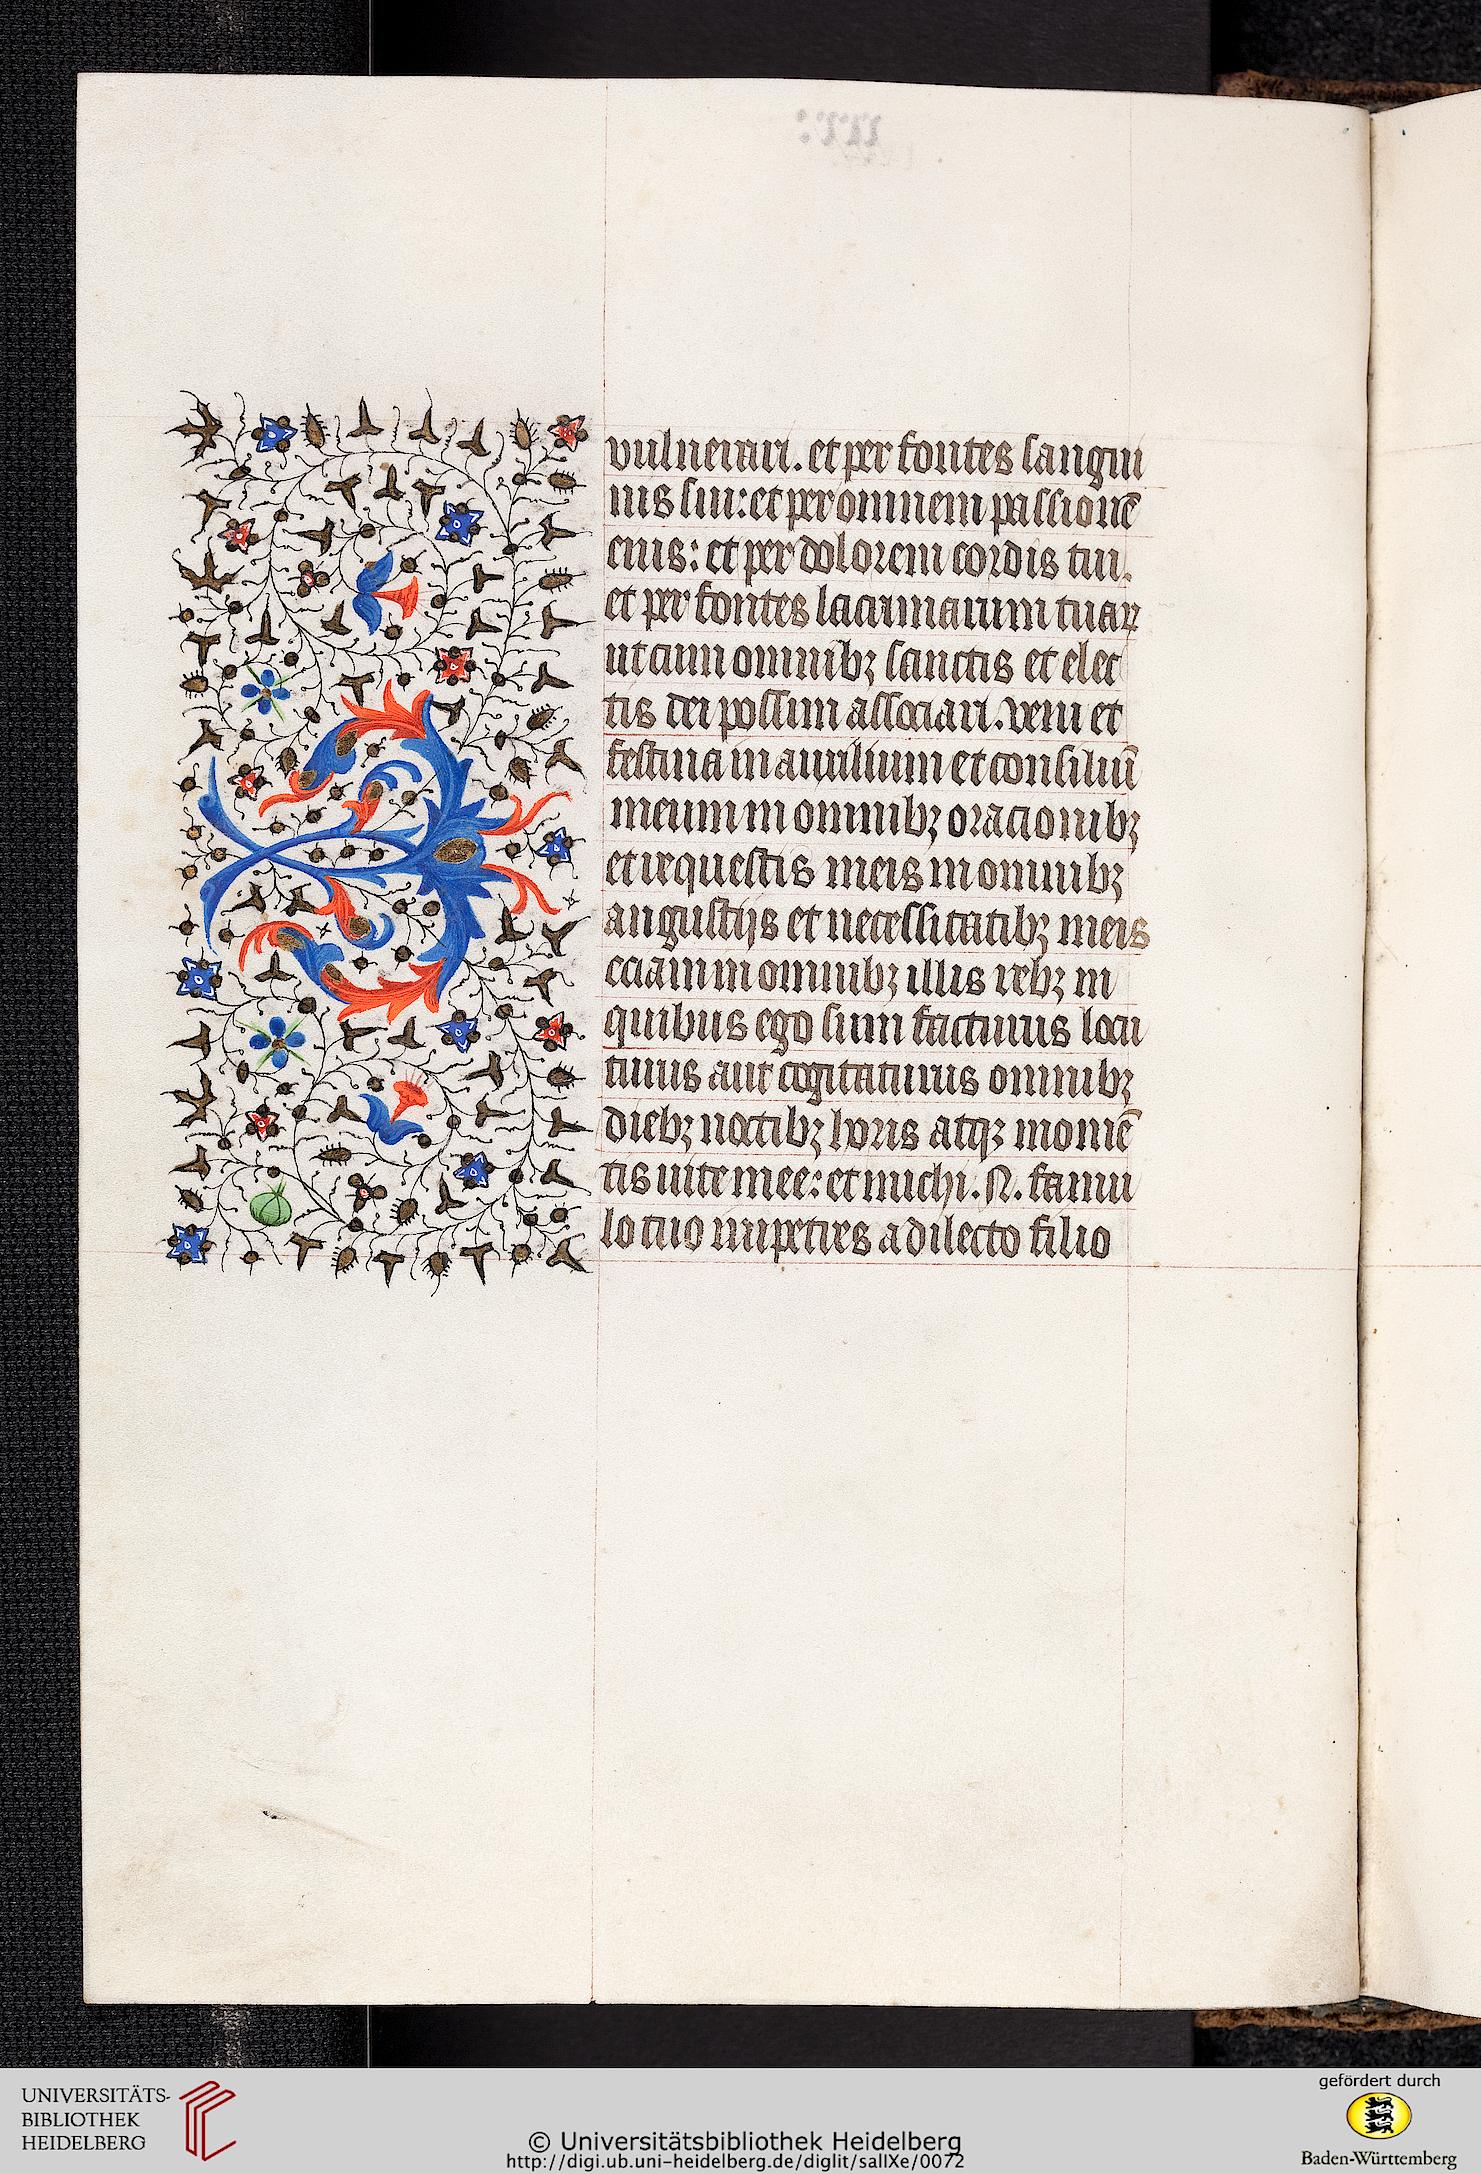 vulnerari. et per fontes sangui
nis sui: et per omnem passionē
eius: et per dolorem cordis tui.
et per fontes lacrimarum tuaꝝ
ut cum omnibꝫ sanctis et elec
tis dei possim associari. veni et
festina in auxilium et consiliū
meum in omnibꝫ oracionibꝫ
et requestis meis in omnibꝫ
angustijs et necessitatibꝫ meis
eciam in omnibꝫ illis rebꝫ in
quibus ego sum facturus locu
turus aut cogitaturus omnibꝫ
diebꝫ noctibꝫ horis atqꝫ momē
tis uite mee: et michi. N. famu
lo tuo impetres a dilecto filio
UNIVERSITÄTS-
BIBLIOTHEK
HEIDELBERG
© Universitätsbibliothek Heidelberg
http://digi.ub.uni-heidelberg.de/diglit/salIXe/0072
gefördert durch
Baden-Württemberg